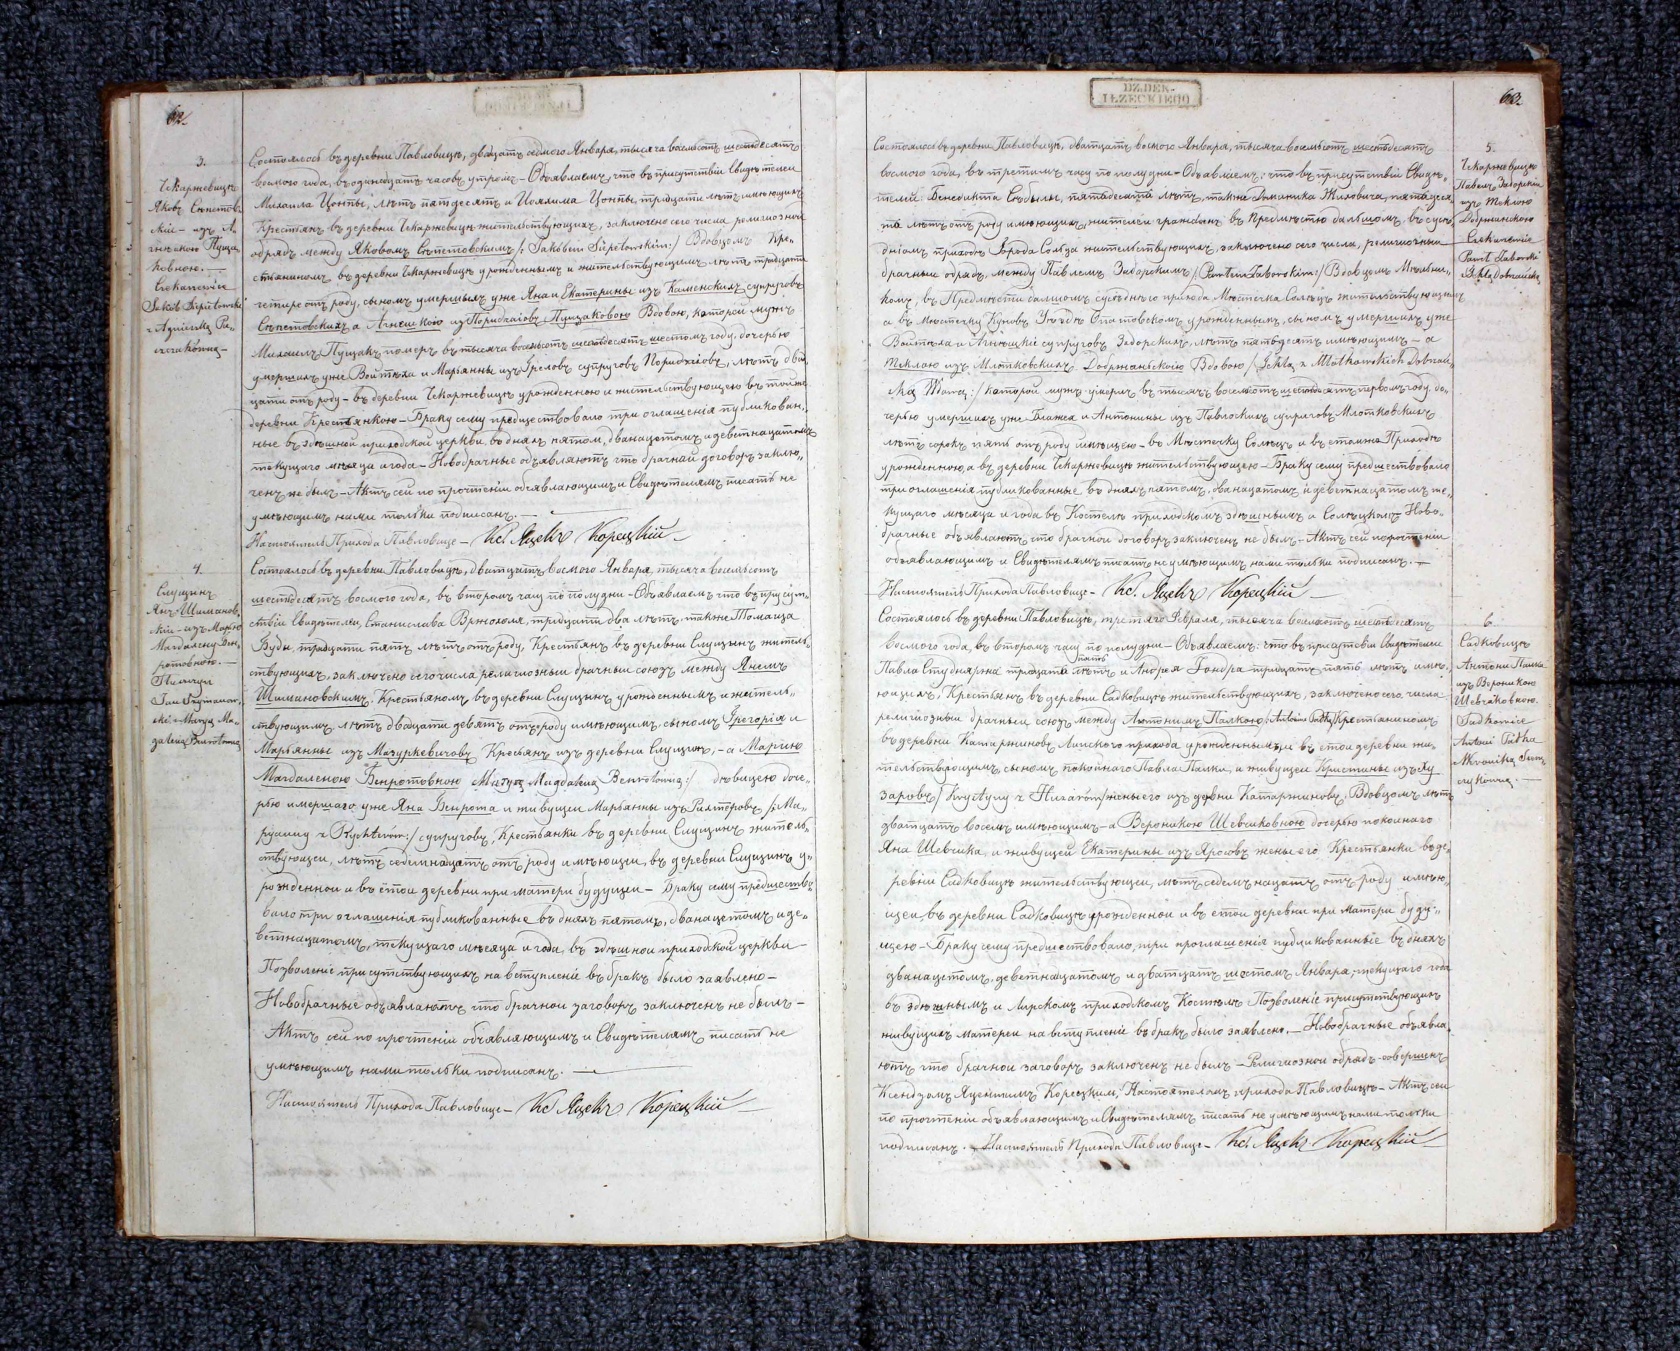 62.
3.
Чекаржевицѣ
Яковъ Сѣпетов
скій – изъ А-
гнѣскою Пуща
ковною. —
Czekarzewice
Jakób Siepietowski
z Agnieszką Pu-
szczakówną –
Состоялось въ деревни Павловицѣ, двадцать седмого Января, тысяча восемьсотъ шестьдесятъ
восмого года, въ одинадцать часовъ утромъ – Объявляемъ, что въ присутствіи Свидѣтелей
Михаила Цонты, лѣтъ пятдесятъ и Иоахима Цонты, тридцати лѣтъ имѣющихъ
Крестьянъ въ деревни Чекаржевицѣ жительствующихъ, заключено сего числа религиозной
обрядъ между Яковомъ Сѣпетовскимъ /: Jakóbem Siepietowskim :/ Вдовцомъ Кре-
стьяниномъ въ деревни Чекаржевицѣ урожденнымъ и жительствующимъ лѣтъ тридцати
четыре отъ роду, сыномъ умершыхъ уже Яна и Екатерины изъ Каменскихъ супруговъ
Сѣпетовскихъ а Агнешкою изъ Поридзіовъ Пущаковою Вдовою, которой мужъ
Михаилъ Пущакъ померъ въ тысяча восемьсотъ шестьдесятъ шестомъ году, дочерью
умершихъ уже Войтѣха и Марьянны изъ Греловъ супруговъ Поридзіовъ, лѣтъ два
цати отъ роду – въ деревни Чекаржевицѣ урожденною и жительствующею въ тойже
деревни Крестьянкою – Браку сему предшествовало три оглашенія публикован-
ные въ здѣшной приходской церкви, въ дняхъ пятом, дванацатомъ и девятнацатомъ
текущаго мѣсяца и года – Новобрачные объявляютъ что брачнай договоръ заклю-
ченъ не былъ – Актъ сей по прочтеніи объявляющимъ и Свидѣтелямъ писать не
умѣющимъ нами только подписанъ. —
Настоятель Прихода Павловице – Кс. Яцекъ Корецкій –
4.
Слущинъ
Янъ Шиманов
скій – изъ Марію
Магдалену Бен
ротовною. —
Słuszczyn
Jan Szymanow-
ski z Maryą Ma-
gdaleną Benrotówną
Состоялось въ деревни Павловицѣ, двятцать восмого Января, тысяча восемьсотъ
шестьдесятъ восмого года, въ второмъ часу по полудни – Объявляемъ что въ присут-
ствіи Свидѣтелей, Станислава Вржохоля, тридцати два лѣтъ, также Томаша
Вуды, тридцати пять лѣтъ отъ роду, Крестьянъ въ деревни Слущинъ житель-
ствующихъ, заключено сего числа религіозныи брачныи союзъ, между Яномъ
Шимановскимъ, Крестьяномъ въ деревни Слущинъ урожденнымъ и житель-
ствующимъ лѣтъ двадцати девять отъ роду имѣющимъ, сыномъ Грегорія и
Марьянны изъ Мазуркевичовъ Кресьянъ изъ деревни Слущинъ, – а Марію
Магдаленою Бенротовною Maryą Magdaleną Benrotówną :/ дѣвицею доче-
рью имершаго уже Яна Бенрота и живущеи Марьянны изъ Рихтеровъ /: Ma-
ryanny z Rychterów :/ супруговъ, Крестьянки въ деревни Слущинъ житель-
ствующеи, лѣтъ седимнацать отъ роду имѣющеи, въ деревни Слущинъ у-
рожденнои и въ етои деревни при матери будущеи – Браку сему предшество-
вало три оглашенія публикованные въ дняхъ пятомъ, дванацетомъ и де-
вятнацатомъ, текущаго мѣсяца и года, въ здѣшнои приходской церкви
Позволеніе присутствующихъ на вступленіе въ бракъ было заявлено –
Новобрачные объявляютъ что брачнои заговоръ заключенъ не былъ –
Актъ сей по прочтеніи объявляющимъ и Свидѣтелямъ писать не
умѣющимъ нами только подписанъ. —
Настоятель Прихода Павловице – Кс Яцекъ Корецкій –
DZ.DEK.
IŁZECKIEGO
63.
Состоялось въ деревни Павловицѣ, двятцать восмого Января, тысяча восемьсотъ шестьдесятъ
восмого года, въ третимъ часу по полудни – Объявляемъ: что въ присутствіи Свидѣ-
телей Бенедикта Сѣбылы, пятьдесятъ лѣтъ, также Доминика Жиховича, пятьдеся
та лѣтъ отъ роду имѣющихъ, жителей граждан въ Предмѣстю дальшомъ, въ сусѣ-
днымъ приходѣ Города Сольца жительствующихъ, заключено сего числа, религиозныи
брачныи обрядъ, между Павлемъ Заборскимъ /: Pawłem Zaborskim :/ Вдовцемъ Мѣльни-
комъ, въ Предмѣсти далшомъ сусѣднего прихода Мѣстечка Солецъ жительствующимъ
а въ мѣстечку Куновъ Уѣздѣ Опатовскомъ урожденнымъ, сыномъ умершихъ уже
Войтѣха и Агнешкіе супруговъ Заборскихъ, лѣтъ пятьдесятъ имѣющимъ – а
Теклою изъ Млотковскихъ Добржаньскою Вдовою /: Teklą z Młotkowskich Dobrzań-
ską Wdową :/ которой мужъ умеръ въ тысячъ восемьсотъ шестьдесятъ первомъ году, до-
черью умершихъ уже Блажея и Антонины изъ Павлоскихъ супруговъ Млотковскихъ
лѣтъ сорокъ пять отъ роду имѣщею – въ Мѣстечку Солецъ и въ етомже Приходѣ
урожденною, а въ деревни Чекаржевицѣ жительствующею – Браку сему предшествовало
три оглашенія публикованные въ дняхъ пятомъ, дванацатомъ и девятнацатомъ те-
кущаго мѣсяца и года въ Костелѣ приходскомъ здѣшнымъ а Солецкомъ Ново-
брачные объявляютъ что брачнои договоръ заключенъ не былъ – Актъ сей по прочтеніи
объявляющимъ и Свидѣтелямъ писать не умѣющимъ, нами только подписанъ. —
Настоятель Прихода Павловице – Кс. Яцекъ Корецкій –
5.
Чекаржевицѣ
Павелъ Заборскій
изъ Теклою
Добржанскою
Czekarzewice
Paweł Zaborski
z Teklą Dobrzańską
Состоялось въ деревни Павловицѣ, третяго Февраля, тысяча восемьсотъ шестьдесятъ
восмого года, въ второмъ часу по полудни – Объявляемъ: что въ присутствіи Свидѣтелей
Павла Студняржа тридцати пять лѣтъ и Андрея Гондра тридцать пять лѣтъ имѣ-
ющихъ, Крестьянъ въ деревни Садковицѣ жительствующихъ, заключено сего числа
религиозныи брачныи союзъ между Антонимъ Палкою, Antonim Pałką Крестьяниномъ
въ деревни Катаржиновъ Липского прихода урожденнымъ, и въ етой деревни жи-
тельствующимъ, сыномъ покойнаго Павла Палки, и живущей Кристины изъ Ху
заровъ /: Krystyny z Huzarów/ жены его изъ дервни Катаржиновъ, Вдовцомъ лѣтъ
двятцать восемъ имѣющимъ – а Вероникою Шевчиковною дочерью покоинаго
Яна Шевчика, и живущей Екатерины изъ Яросовъ жены его Крестьянки въ де-
ревни Садковицѣ жительствующеи, лѣтъ седемънацать отъ роду имѣю-
щеи, въ деревни Садковицѣ урожденнои и въ етои деревни при матери буду-
щею – Браку сему предшествовало, три проглашенія публикованные въ дняхъ
дванацетомъ, девятнацатомъ и двятцать шестомъ Января, текущаго года
въ здѣшнымъ и Липскомъ приходскомъ Костелѣ Позволеніе присутствующихъ
живущихъ матереи на вступленіе въ бракъ было заявлено. – Новобрачные объявля-
ютъ что брачнои заговоръ заключенъ не былъ – Религиознои обрядъ совершенъ
Ксендзомъ Яцентымъ Корецкимъ, Настоятелемъ прихода Павловицѣ – Актъ сеи
по прочтеніи объявляющимъ и Свидѣтелямъ писать не умѣющимъ нами только
подписанъ. – Настоятель Прихода Павловице – Кс. Яцекъ Корецкій –
6.
Садковицѣ
Антони Палка
изъ Вероникою
Шевчаковною.
Sadkowice
Antoni Pałka
z Weroniką Szew
czykówną. —